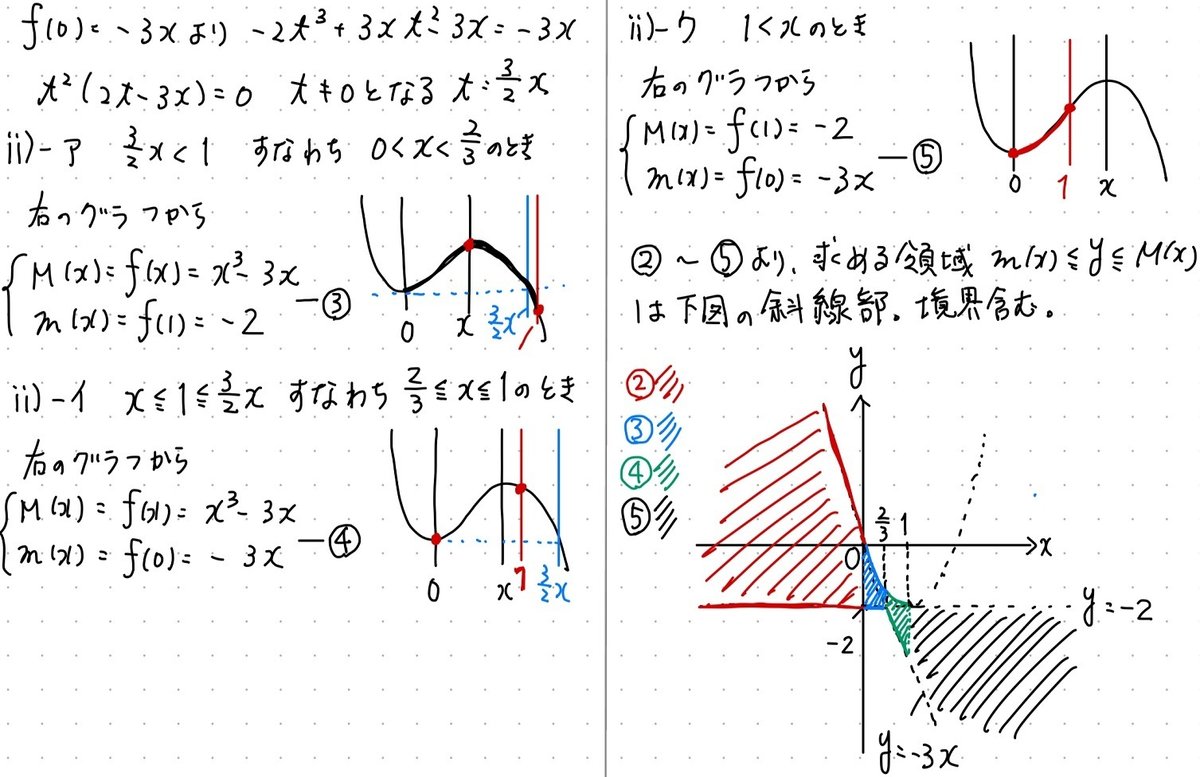 f(0) = -3x より -2t³ + 3xt² - 3x = -3x
t²(2t - 3x) = 0 t ≠ 0 となる t = 3/2 x
ii)-ア 3/2 x < 1 すなわち 0 < x < 2/3 のとき
右のグラフから
M(x) = f(x) = x³ - 3x
m(x) = f(1) = -2
—③
0 x 3/2 x 1
ii)-イ x ≦ 1 ≦ 3/2 x すなわち 2/3 ≦ x ≦ 1 のとき
右のグラフから
M(x) = f(x) = x³ - 3x
m(x) = f(0) = -3x
—④
0 x 1 3/2 x
ii)-ウ 1 < x のとき
右のグラフから
M(x) = f(1) = -2
m(x) = f(0) = -3x
—⑤
0 1 x
② ~ ⑤ より、求める領域 m(x) ≦ y ≦ M(x)
は下図の斜線部。境界含む。
②
③
④
⑤
y
2/3 1
0
x
y = -2
-2
y = -3x